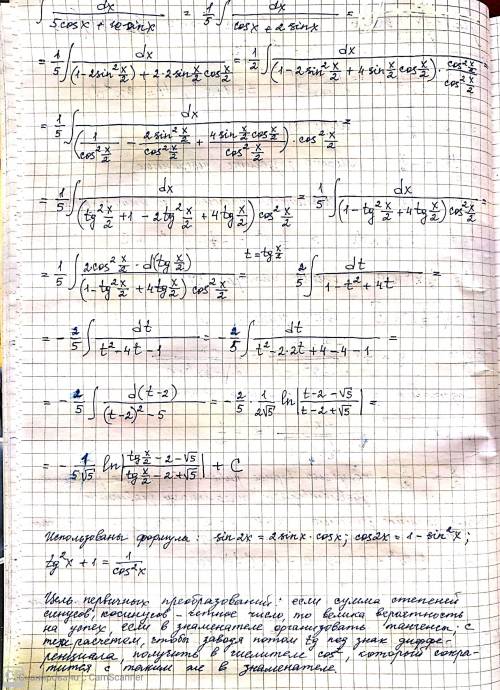 ∫ dx/(5cosx + 10sinx) = 1/5 ∫ dx/(cosx + 2sinx) =
= 1/5 ∫ dx/((1-2sin²x/2) + 2·2·sin x/2 cos x/2) = 1/2 ∫ dx/((1-2sin²x/2 + 4sin x/2 cos x/2)·cos²x/2 / cos²x/2) =
= 1/5 ∫ dx/((1/cos²x/2 - 2sin²x/2 / cos²x/2 + 4sin x/2 cos x/2 / cos²x/2)·cos²x/2) =
= 1/5 ∫ dx/((tg²x/2 + 1 - 2tg²x/2 + 4tg x/2) cos²x/2) = 1/5 ∫ dx/((1-tg²x/2 + 4tg x/2) cos²x/2) =
= 1/5 ∫ 2cos²x/2 · d(tg x/2)/((1-tg²x/2 + 4tg x/2) cos²x/2) = t = tg x/2 2/5 ∫ dt/(1-t²+4t) =
= - 2/5 ∫ dt/(t²-4t-1) = - 2/5 ∫ dt/(t²-2·2t+4-4-1) =
= - 2/5 ∫ d(t-2)/((t-2)²-5) = - 2/5 · 1/2√5 ln|(t-2-√5)/(t-2+√5)| =
= - 1/5√5 ln|(tg x/2 -2-√5)/(tg x/2 -2+√5)| + C
Использованы формула: sin2x = 2sinx·cosx; cos2x = 1-sin²x;
tg²x + 1 = 1/cos²x
Цель первичных преобразований: если сумма степеней
синусов, косинусов - чётное число, то велика вероятность
на успех, если в знаменателе организовать тангенсы, с
тем расчётом, чтобы заводя потом tg под знак диффе-
ренциала, получить в числителе cos², который сокра-
тится с таким же в знаменателе.
Сканировано с CamScanner